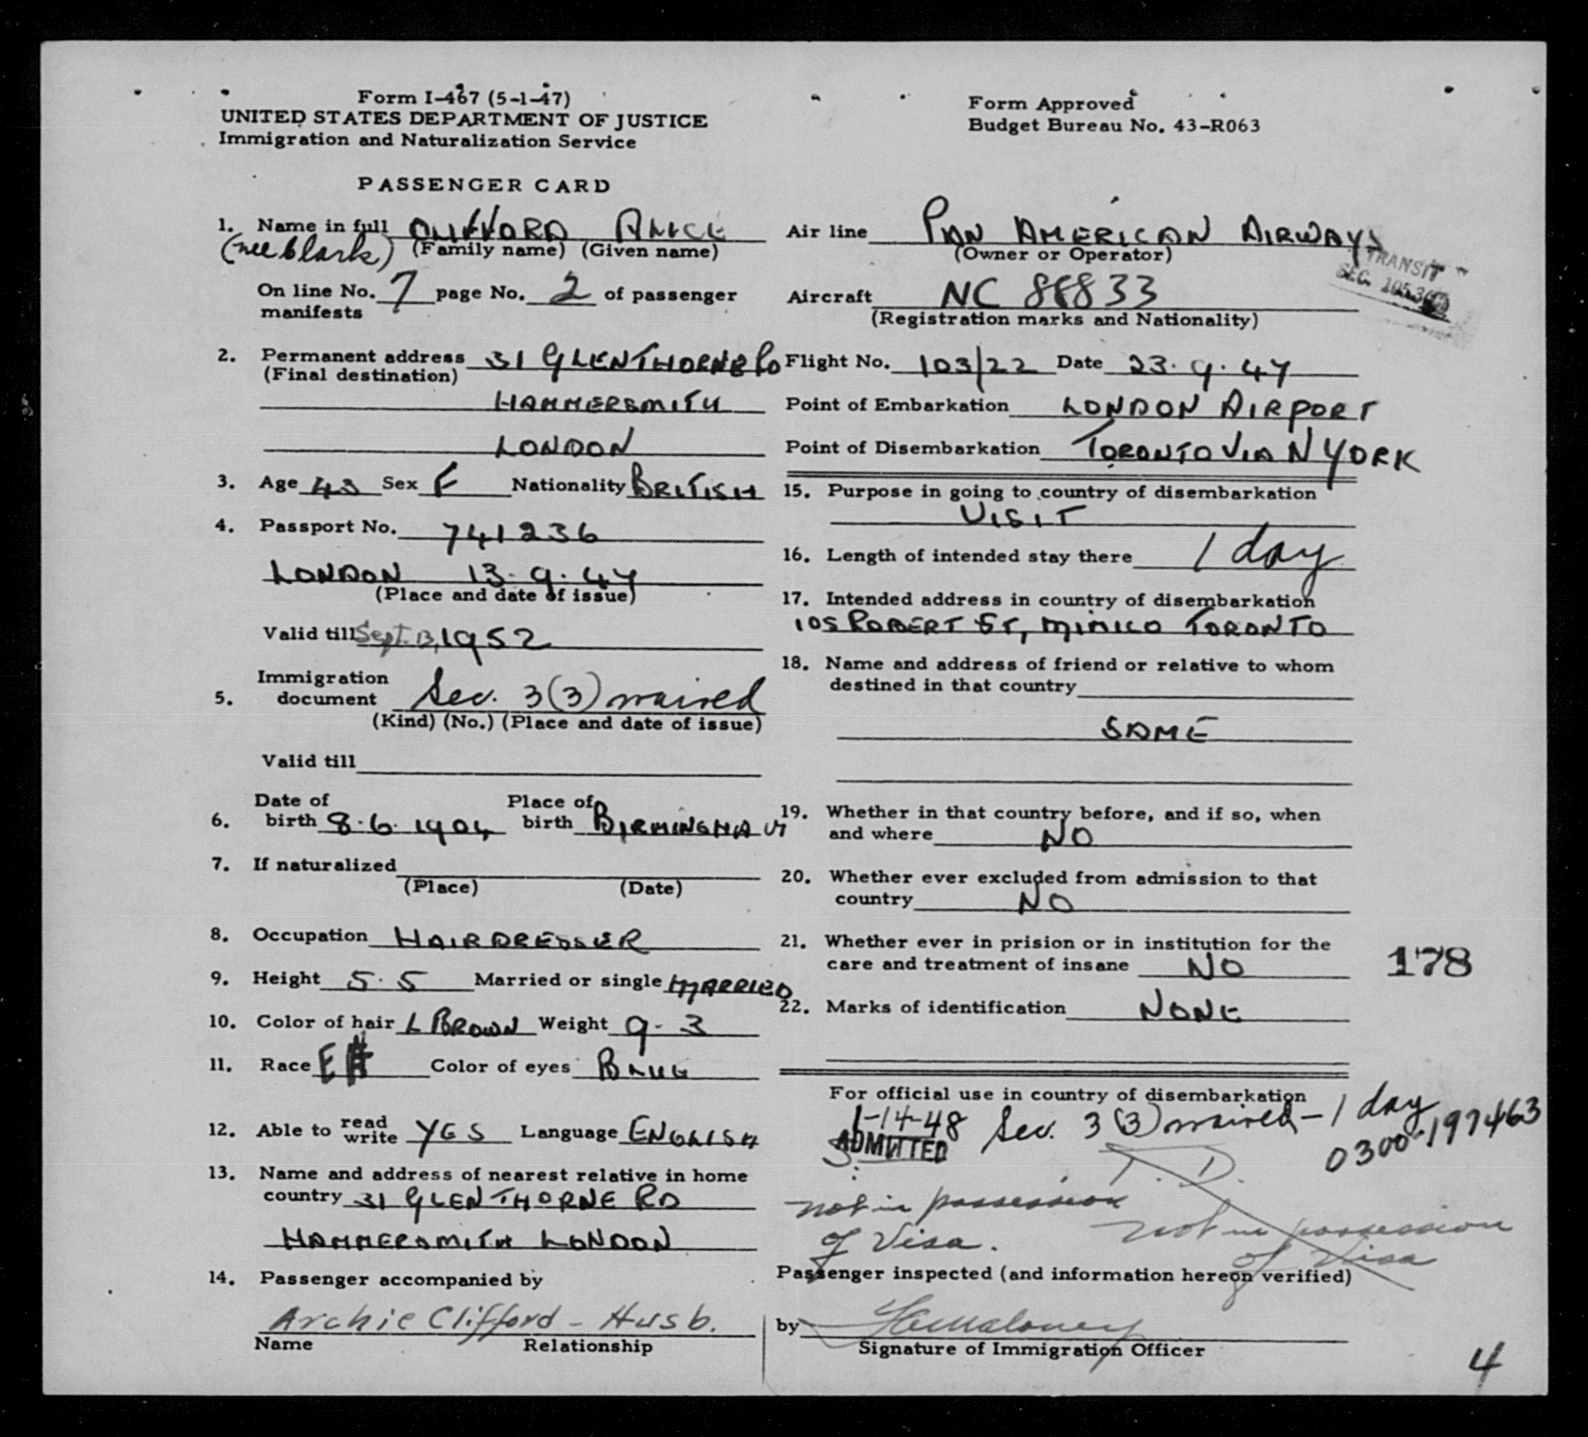 Form I-467 (5-1-47)
UNITED STATES DEPARTMENT OF JUSTICE
Immigration and Naturalization Service
Form Approved
Budget Bureau No. 43-R063
PASSENGER CARD
1. Name in full CLIFFORD ALICE
(nee Clark) (Family name) (Given name)
On line No. 7 page No. 2 of passenger
manifests
2. Permanent address 31 GLENTHORNE RD
(Final destination)
HAMMERSMITH
LONDON
3. Age 43 Sex F Nationality BRITISH
4. Passport No. 741236
LONDON 13.9.47
(Place and date of issue)
Valid till Sept. 13, 1952
Immigration
5. document Sec. 3(3) waived
(Kind) (No.) (Place and date of issue)
Valid till
Date of Place of
6. birth 8.6.1904 birth BIRMINGHAM
7. If naturalized
(Place) (Date)
8. Occupation HAIRDRESSER
9. Height 5.5 Married or single MARRIED
10. Color of hair L BROWN Weight 9-3
11. Race E Color of eyes BLUE
12. Able to read write YES Language ENGLISH
13. Name and address of nearest relative in home
country 31 GLENTHORNE RD
HAMMERSMITH LONDON
14. Passenger accompanied by
Archie Clifford - Husb.
Name Relationship
Air line PAN AMERICAN AIRWAYS
(Owner or Operator)
TRANSIT
SEC. 105.3
Aircraft NC 88833
(Registration marks and Nationality)
Flight No. 103/22 Date 23.9.47
Point of Embarkation LONDON AIRPORT
Point of Disembarkation TORONTO VIA N YORK
15. Purpose in going to country of disembarkation
VISIT
16. Length of intended stay there 1 day
17. Intended address in country of disembarkation
105 ROBERT ST, MIMICO TORONTO
18. Name and address of friend or relative to whom
destined in that country
SAME
19. Whether in that country before, and if so, when
and where NO
20. Whether ever excluded from admission to that
country NO
21. Whether ever in prision or in institution for the
care and treatment of insane NO
178
22. Marks of identification NONE
For official use in country of disembarkation
1-14-48 Sec. 3(3) waived - 1 day
ADMITTED
0300-197463
T. D.
not in possession
of Visa.
not in possession
of Visa
Passenger inspected (and information hereon verified)
by
Signature of Immigration Officer
4